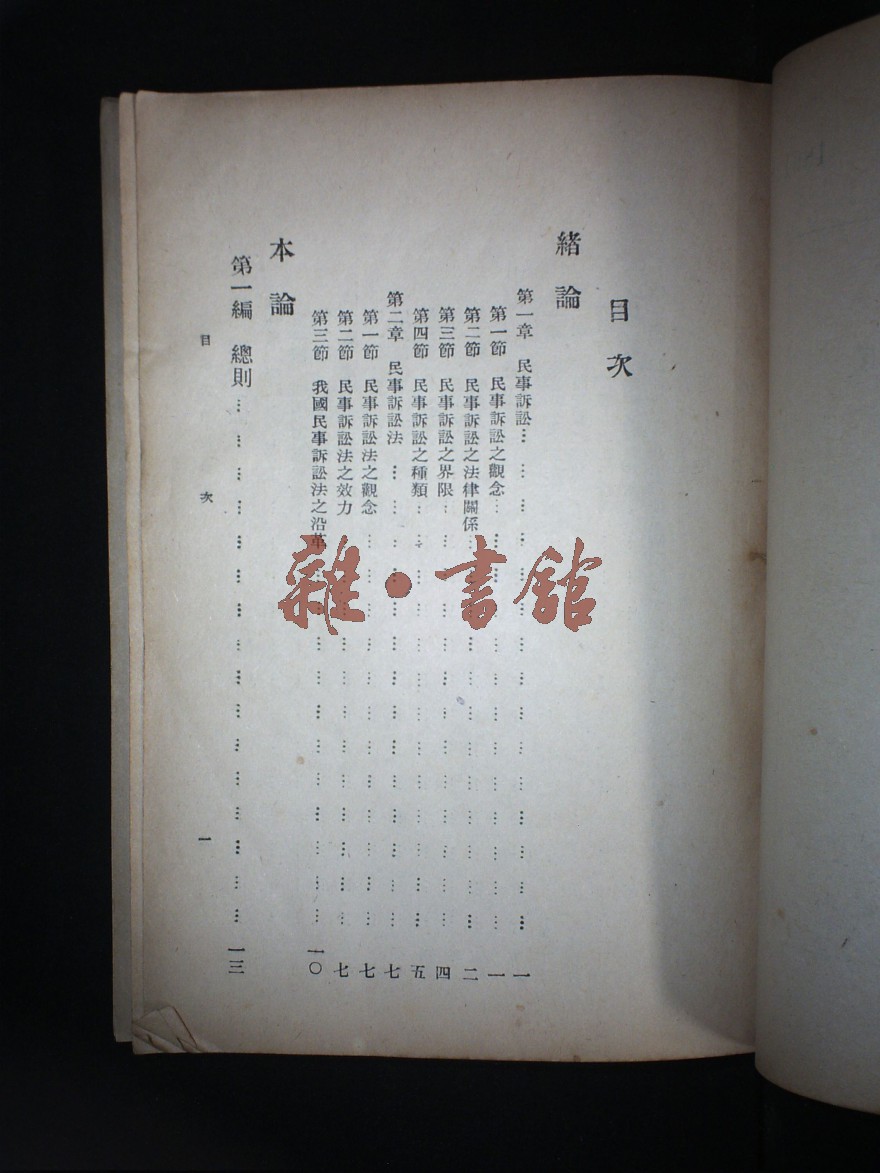 目次
緒論
第一章 民事訴訟………………………………一
第一節 民事訴訟之觀念………………………………一
第二節 民事訴訟之法律關係………………………………二
第三節 民事訴訟之界限………………………………四
第四節 民事訴訟之種類………………………………五
第二章 民事訴訟法………………………………七
第一節 民事訴訟法之觀念………………………………七
第二節 民事訴訟法之效力………………………………七
第三節 我國民事訴訟法之沿革………………………………一〇
本論
第一編 總則………………………………一三
目次 一
雜·書館